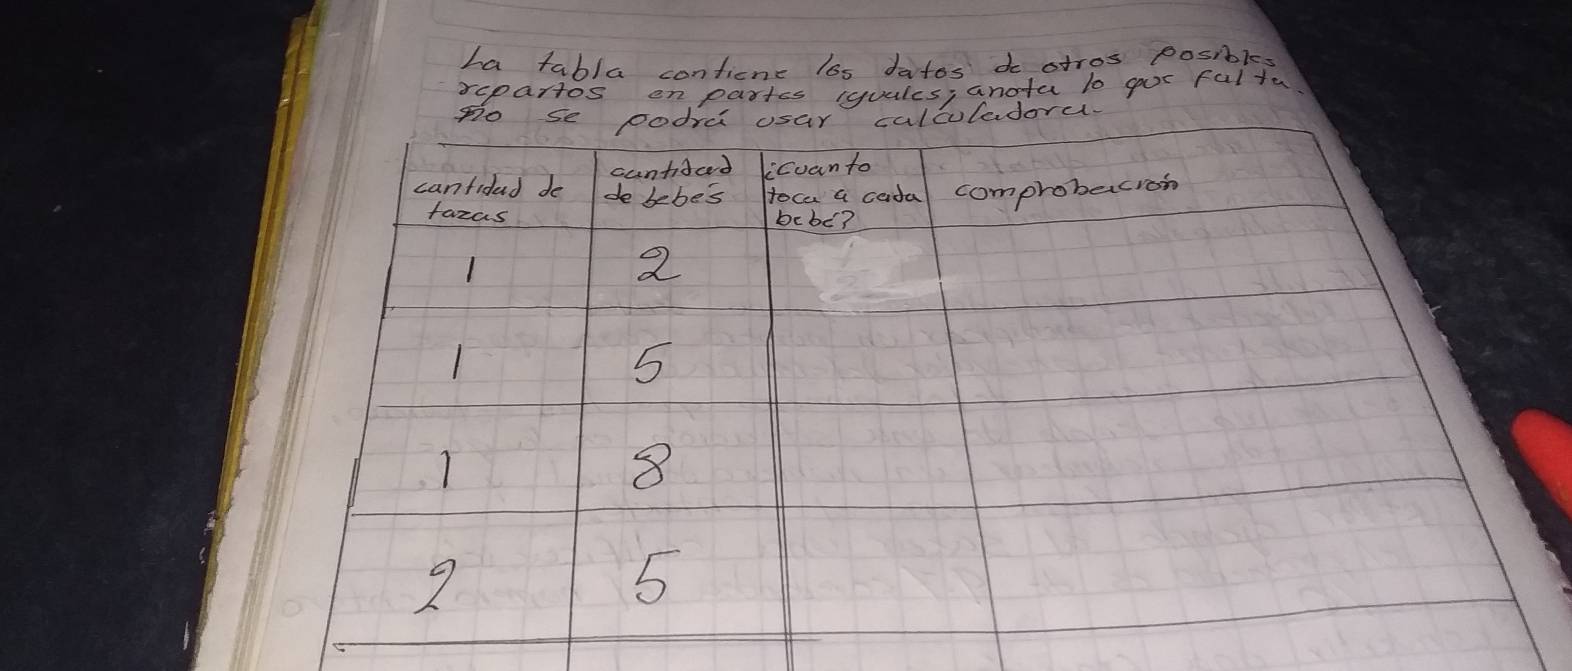 La tabla contiene los datos de otros posibles
repartos en partes iguales; anota lo que falta.
no se podrá usar calculadora.
cantidad de tazas
cantidad de bebés
¿cuanto toca a cada bebé?
comprobación
1 2
1 5
1 8
2 5